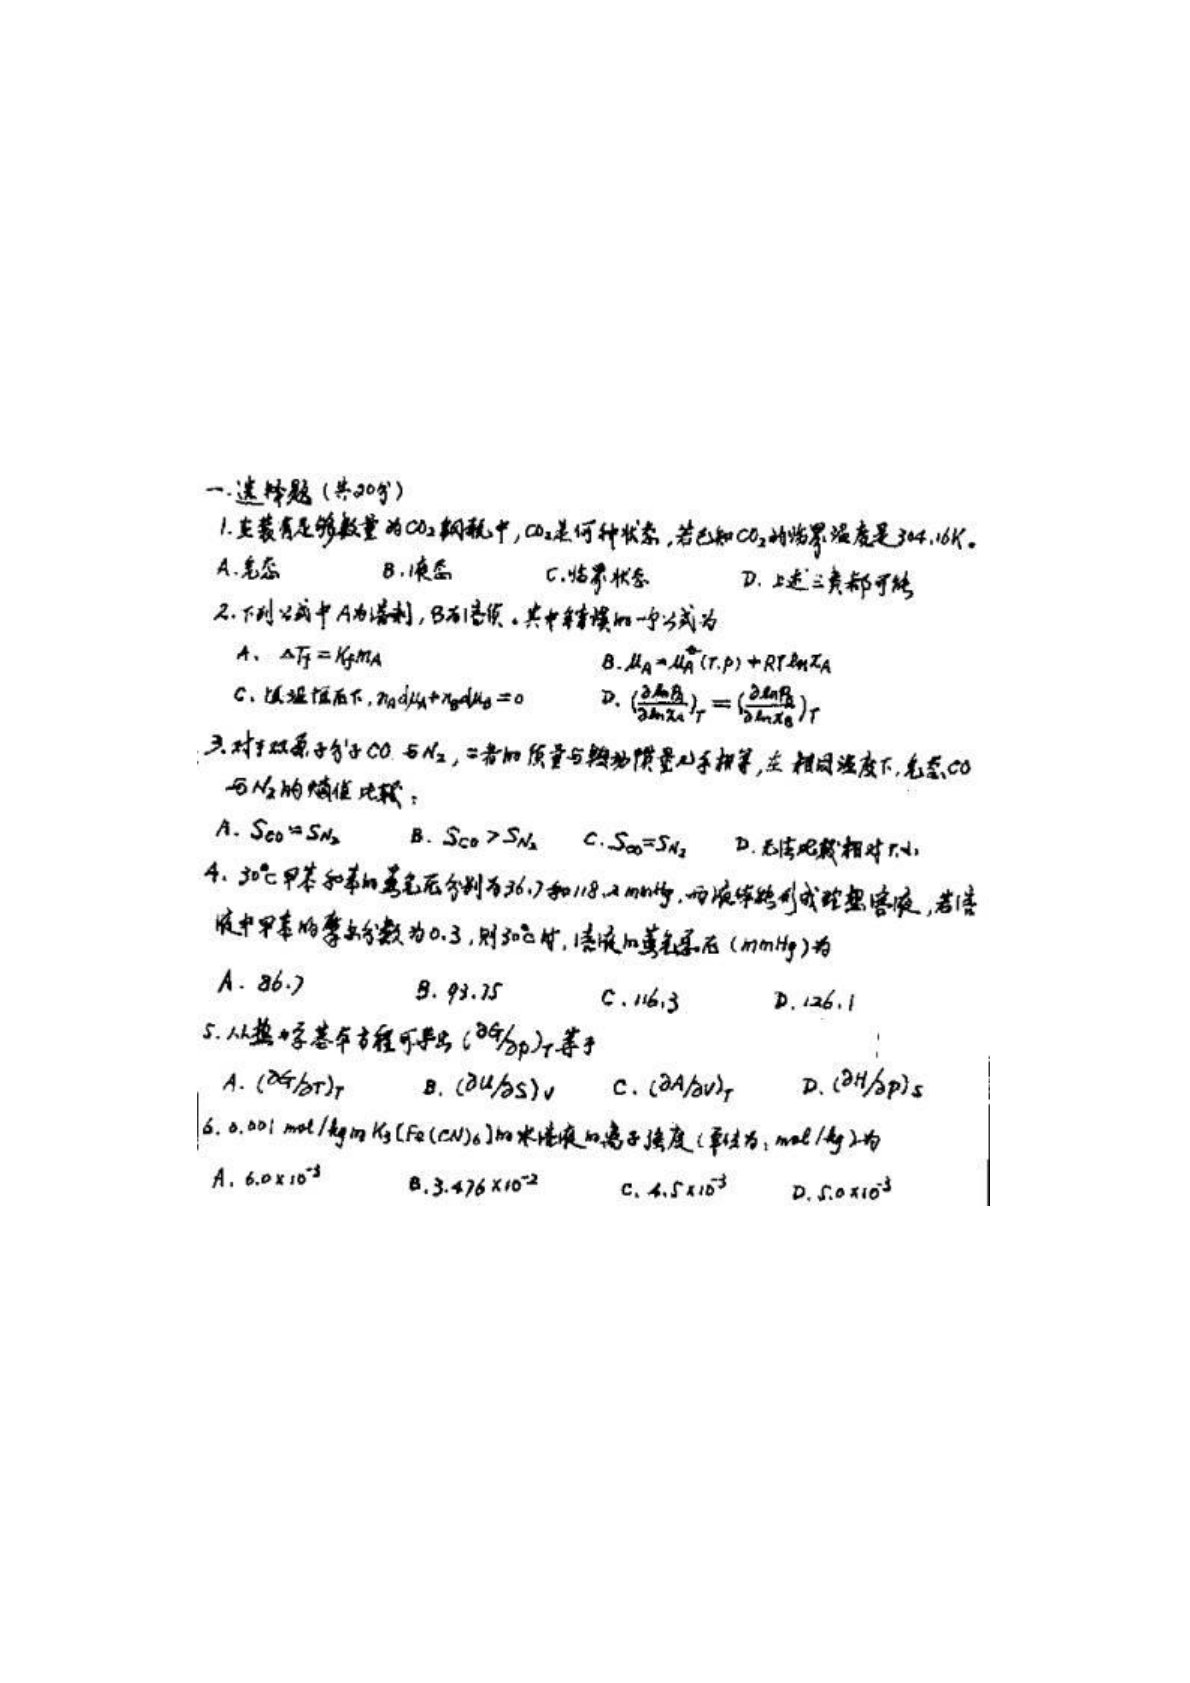 一.选择题(共20分)
1.在装有足够数量的CO₂钢瓶中,CO₂是何种状态,若已知CO₂的临界温度是304.16K。
A.气态 B.液态 C.临界状态 D.上述三者都可能
2.下列公式中A为溶剂,B为溶质。其中错误的一个公式为
A、ΔTf=KfmA B.μA=μA*(T.P)+RTlnxA
C、恒温恒压下,nAdμA+nBdμB=0 D.(∂lnPA/∂lnxA)T=(∂lnPB/∂lnxB)T
3.对于双原子分子CO与N₂,二者的质量与转动惯量几乎相等,在相同温度下,气态CO
与N₂的熵值比较:
A.SCO≈SN₂ B.SCO>SN₂ C.SCO=SN₂ D.无法比较相对大小
4、30℃甲苯和苯的蒸气压分别为36.7和118.2mmHg,两液体能形成理想溶液,若溶
液中甲苯的摩尔分数为0.3,则30℃时,溶液的蒸气总压(mmHg)为
A.86.7 B.93.75 C.116.3 D.126.1
5.从热力学基本方程可导出(∂G/∂p)T等于
A.(∂G/∂T)T B.(∂U/∂S)V C.(∂A/∂V)T D.(∂H/∂P)S
6.0.001mol/kg的K₃[Fe(CN)₆]的水溶液的离子强度(单位为:mol/kg)为
A.6.0×10⁻³ B.3.476×10⁻² C.4.5×10⁻³ D.5.0×10⁻³